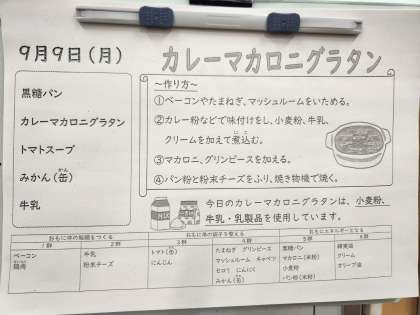 9月9日(月)
カレーマカロニグラタン
黒糖パン
カレーマカロニグラタン
トマトスープ
みかん(缶)
牛乳
～作り方～
①ベーコンやたまねぎ、マッシュルームをいためる。
②カレー粉などで味付けをし、小麦粉、牛乳、
クリームを加えて煮込む。
③マカロニ、グリンピースを加える。
④パン粉と粉末チーズをふり、焼き物機で焼く。
今日のカレーマカロニグラタンは、小麦粉、
牛乳・乳製品を使用しています。
おもに体の組織をつくる
おもに体の調子を整える
おもにエネルギーとなる
1群 2群 3群 4群 5群 6群
ベーコン 牛乳 トマト(缶) たまねぎ グリンピース 黒糖パン
鶏肉 粉末チーズ にんじん マッシュルーム キャベツ マカロニ(米粉) クリーム
セロリ にんにく 小麦粉 オリーブ油
みかん(缶) パン粉(米粉)